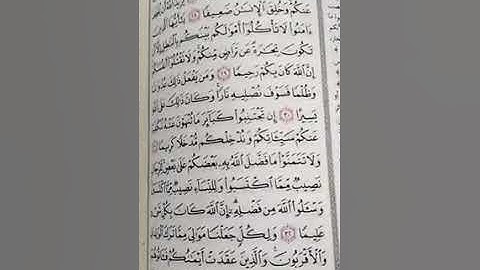 عَنكُمْ وَخُلِقَ ٱلْإِنسَٰنُ ضَعِيفًا ٢٨ يَٰٓأَيُّهَا ٱلَّذِينَ
ءَامَنُوا۟ لَا تَأْكُلُوٓا۟ أَمْوَٰلَكُم بَيْنَكُم بِٱلْبَٰطِلِ إِلَّآ
تَكُونَ تِجَٰرَةً عَن تَرَاضٍ مِّنكُمْ وَلَا تَقْتُلُوٓا۟ أَنفُسَكُمْ
إِنَّ ٱللَّهَ كَانَ بِكُمْ رَحِيمًا ٢٩ وَمَن يَفْعَلْ ذَٰلِكَ عُدْوَٰنًا
وَظُلْمًا فَسَوْفَ نُصْلِيهِ نَارًا وَكَانَ ذَٰلِكَ عَلَى
يَسِيرًا ٣٠ إِن تَجْتَنِبُوا۟ كَبَآئِرَ مَا تُنْهَوْنَ عَنْهُ نُكَفِّرْ
عَنكُمْ سَيِّـَٔاتِكُمْ وَنُدْخِلْكُم مُّدْخَلًا كَرِيمًا
وَلَا تَتَمَنَّوْا۟ مَا فَضَّلَ ٱللَّهُ بِهِۦ بَعْضَكُمْ عَلَىٰ بَعْضٍ لِّلرِّجَالِ
نَصِيبٌ مِّمَّا ٱكْتَسَبُوا۟ وَلِلنِّسَآءِ نَصِيبٌ مِّمَّا ٱكْتَسَبْنَ
وَسْـَٔلُوا۟ ٱللَّهَ مِن فَضْلِهِۦٓ إِنَّ ٱللَّهَ كَانَ بِكُلِّ شَىْءٍ
عَلِيمًا ٣٢ وَلِكُلٍّ جَعَلْنَا مَوَٰلِىَ مِمَّا تَرَكَ ٱلْوَٰلِدَانِ
وَٱلْأَقْرَبُونَ وَٱلَّذِينَ عَقَدَتْ أَيْمَٰنُكُمْ فَـَٔاتُوهُمْ